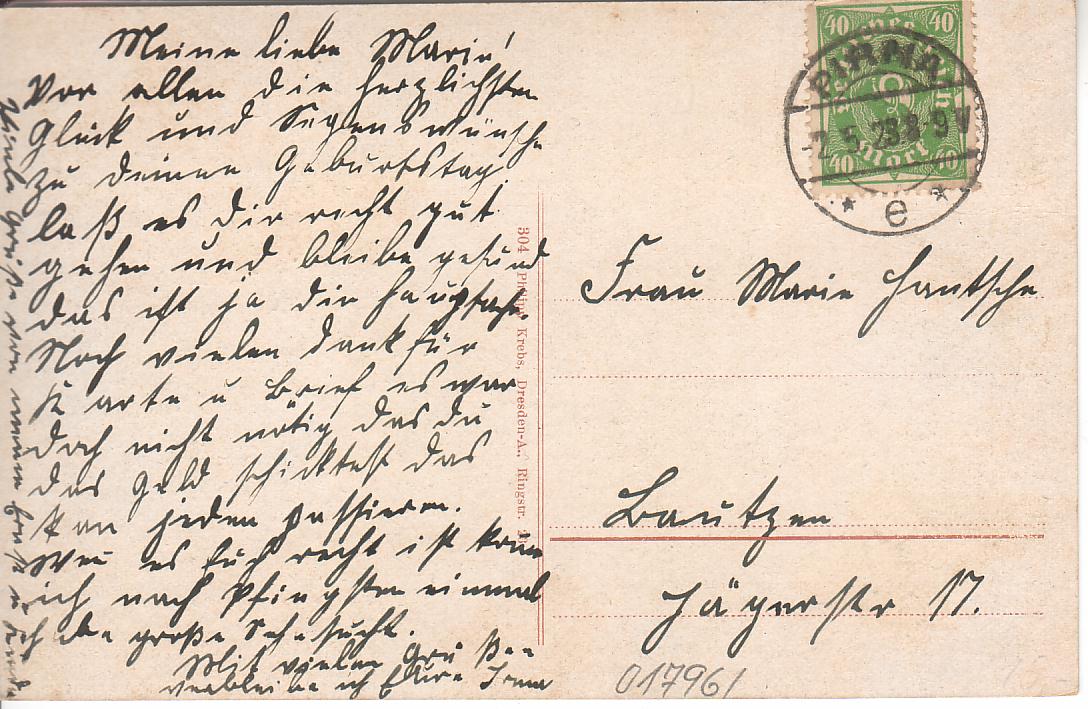 Meine liebe Marie!
Vor allen die herzlichsten
Glück und Segenswünsche
zu deinen Geburtstag.
laß es dir recht gut
gehen und bleibe gesund
das ist ja die Hauptsache.
Noch vielen Dank für
Karte u Brief es war
doch nicht nötig das du
das Geld schicktest das
kan jeden passieren.
Wen es Euch recht ist kome
ich nach Pfingsten einmal
ich habe große Sehnsucht.
Mit vielen Grüßen
verbleibe ich Eure Irma
Viele Grüße von meinen Ernst u
304 Philipp Krebs, Dresden-A., Ringstr.
40 40
PIRNA
-2.5.23 8-9V
40 Mark 40
* e *
Frau Marie Hantsche
Bautzen
Jägerstr 17.
01796/